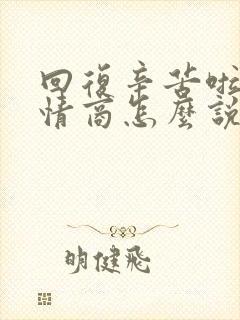 回復辛苦啦
情商怎麼說
明健飛